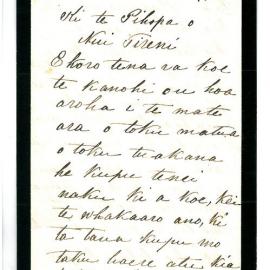 Ki te Pihopa o
Nui Tireni
E koro tena ra koe
te kanohi ou hoa
aroha i te mate
ara o toku matua
o toku tuakana
he kupu tenei
naku ki a koe, kei
te whakaaro ano, ki
ta taua kupu mo
taku haere atu kia